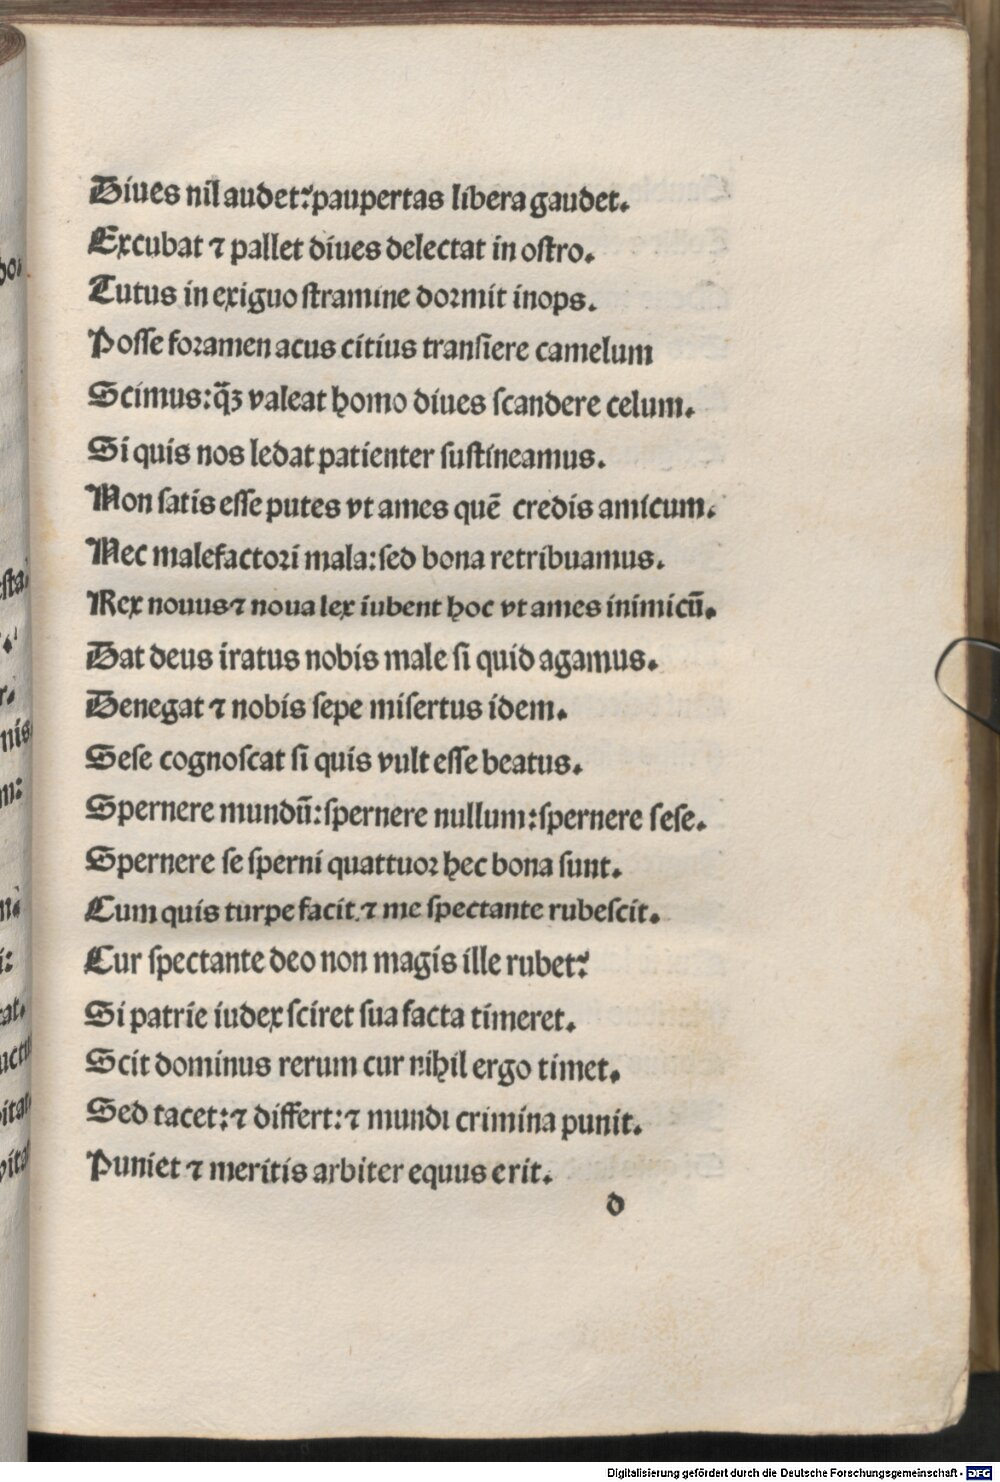 Diues nil audet:paupertas libera gaudet.
Excubat ⁊ pallet diues delectat in oſtro.
Tutus in exiguo ſtramine dormit inops.
Poſſe foramen acus citius tranſiere camelum
Scimus:q̃ꝫ valeat homo diues ſcandere celum.
Si quis nos ledat patienter ſuſtineamus.
Non ſatis eſſe putes vt ames quē credis amicum.
Nec malefactori mala:ſed bona retribuamus.
Rex nouus⁊ noua lex iubent hoc vt ames inimicū.
Dat deus iratus nobis male ſi quid agamus.
Denegat ⁊ nobis ſepe miſertus idem.
Seſe cognoſcat ſi quis vult eſſe beatus.
Spernere mundū:ſpernere nullum:ſpernere ſeſe.
Spernere ſe ſperni quattuor hec bona ſunt.
Cum quis turpe facit.⁊ me ſpectante rubeſcit.
Cur ſpectante deo non magis ille rubet?
Si patrie iudex ſciret ſua facta timeret.
Scit dominus rerum cur nihil ergo timet.
Sed tacet:⁊ differt:⁊ mundi crimina punit.
Puniet ⁊ meritis arbiter equus erit.
d
Digitalisierung gefördert durch die Deutsche Forschungsgemeinschaft - DFG